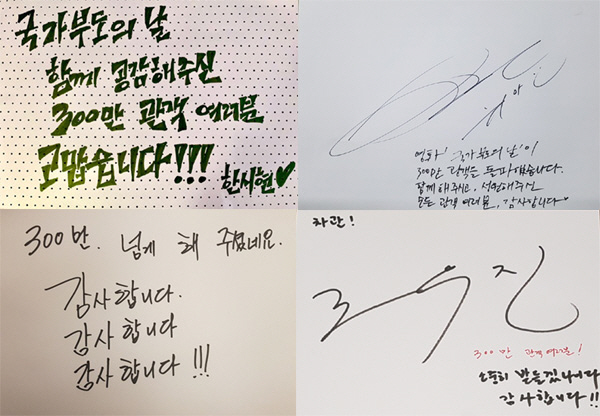 국가부도의 날
함께 공감해주신
300만 관객 여러분
고맙습니다!!!
한시현♥
영화 '국가부도의 날'이
300만 관객을 돌파했습니다.
함께 해주시고, 성원해주신
모든 관객 여러분, 감사합니다♥
300만. 넘게 해 주셨네요.
감사합니다.
감사합니다
감사합니다!!!
차관!
조우진
300만 관객 여러분!
소중히 받들겠나이다
감사합니다!!